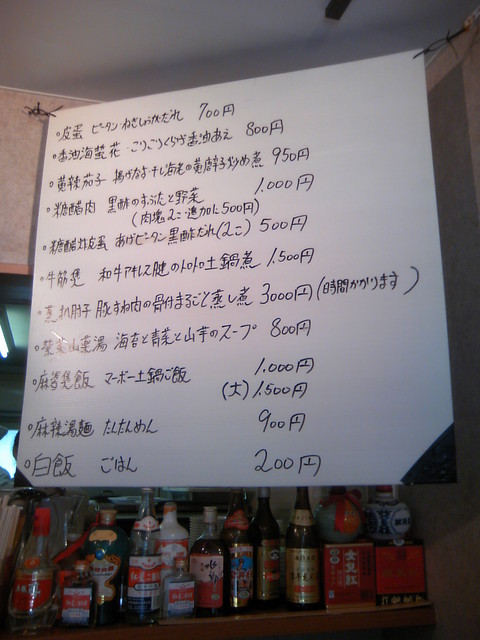 皮蛋 ピータン・ねぎしょうがだれ 700円
香油海蜇花・こりこりくらげ香油あえ 800円
黄辣茄子 揚げなす・干し海老の黄唐辛子炒め煮 950円
糖醋肉 黒酢のすぶたと野菜 1.000円
(肉塊2こ・追加に500円)
糖醋炸皮蛋 あげピータン黒酢だれ(2こ) 500円
牛筋煲 和牛アキレス腱のトロトロ土鍋煮 1.500円
蒸扒肘子 豚すね肉の骨付まるごと蒸し煮 3000円(時間かかります)
紫菜山薬湯 海苔と青菜と山芋のスープ 800円
麻婆煲飯 マーボー土鍋ご飯 1.000円
(大)1.500円
麻辣湯麺 たんたんめん 900円
白飯 ごはん 200円
女児紅